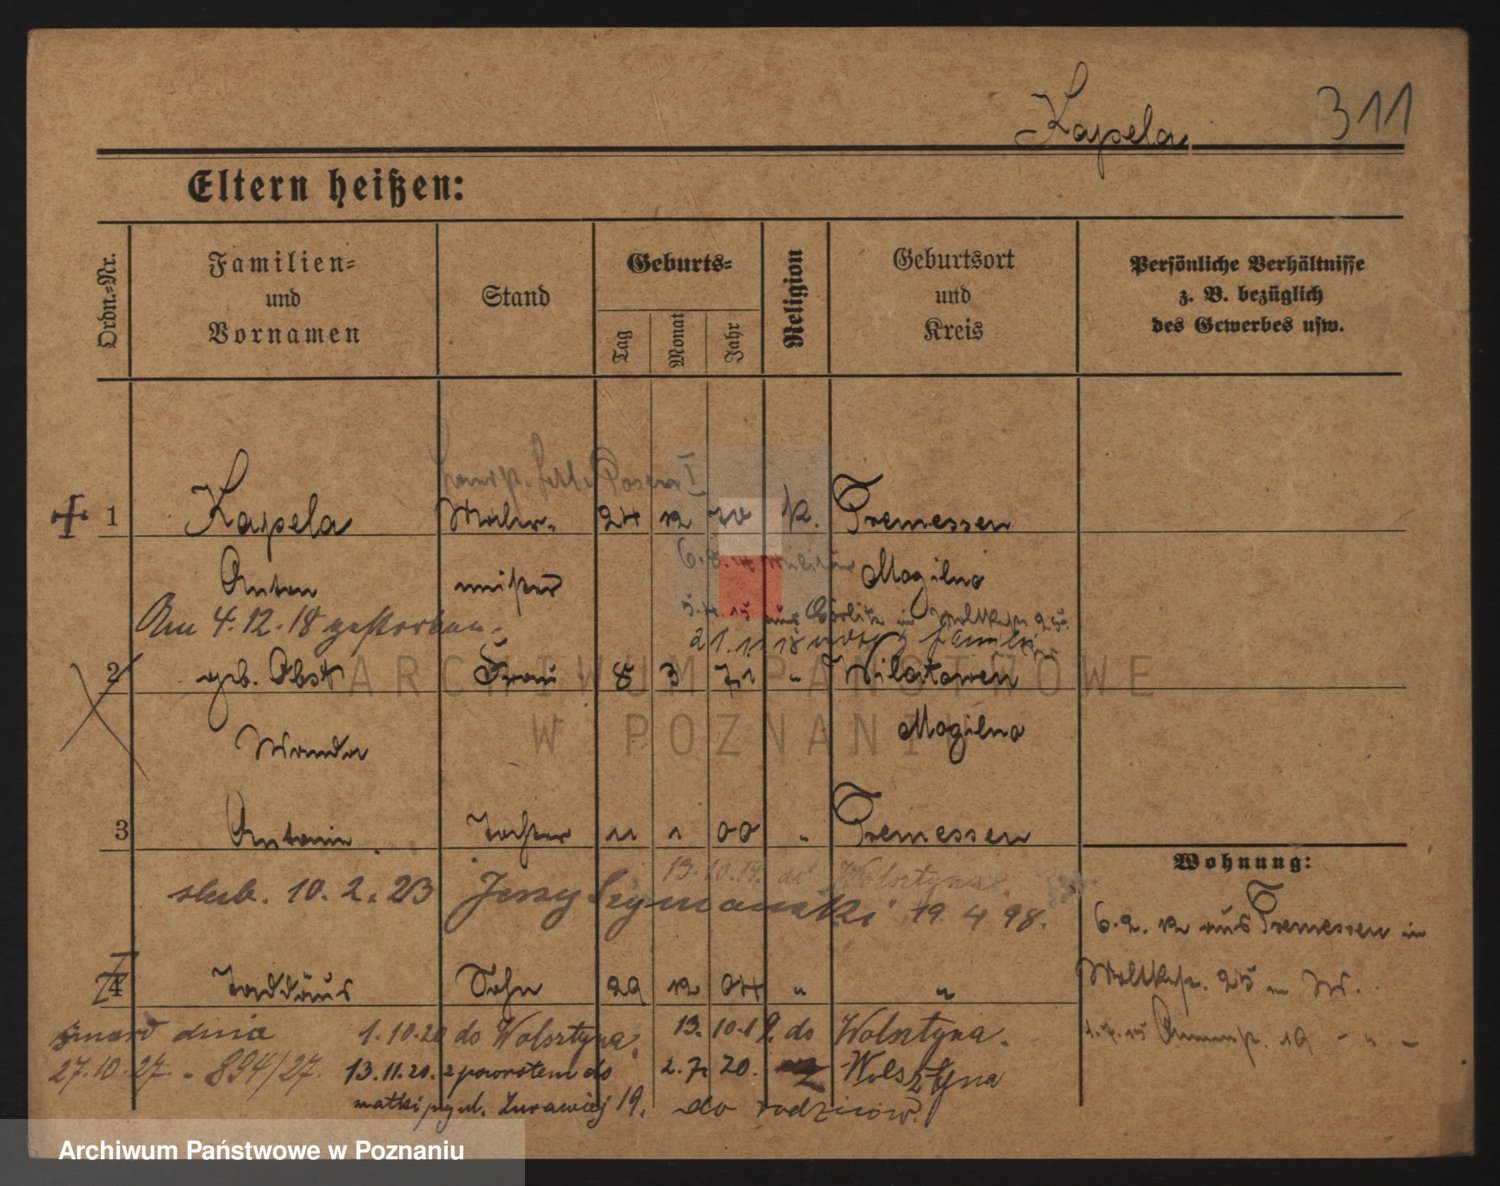 311
Kapela
Eltern heißen:
Ordn.-Nr.
Familien-
und
Vornamen
Stand
Geburts-
Tag
Monat
Jahr
Religion
Geburtsort
und
Kreis
Persönliche Verhältnisse
z. B. bezüglich
des Gewerbes usw.
Posen I
1 Kapela Maler- 24 12 70 k. Tremessen
Anton meister Mogilno
6. 8. 14 Militär
Am 4.12.18 gestorben.
2 geb. Obst Frau 8 3 71 " Wilatowen
Wanda Mogilno
3 Antonie Tochter 11 1 00 " Tremessen
13.10.19. do Wolsztyna.
slub. 10.2.23 Jerzy Szymański 19.4.98.
4 Taddäus Sohn 29 12 04 " "
zmarł dnia 1.10.20 do Wolsztyna. 13.10.19. do Wolsztyna.
27.10.27. - 894/27. 13.11.20. z powrotem do 2.7.20. z Wolsztyna
matki przy ul. Żurawiej 19. do rodziców.
Wohnung:
6.2.12 aus Tremessen in
Moltkestr. 25 in W.
19 - " -
ARCHIWUM PAŃSTWOWE
W POZNANIU
Archiwum Państwowe w Poznaniu